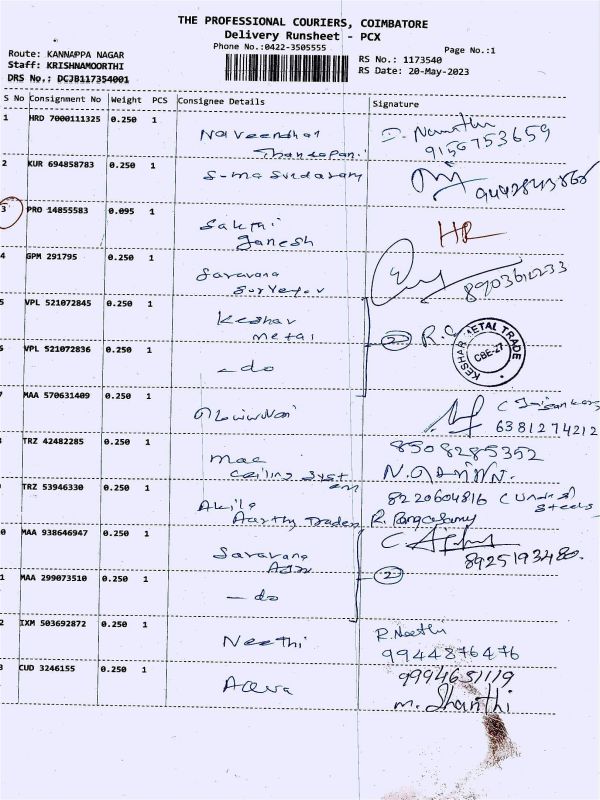 THE PROFESSIONAL COURIERS, COIMBATORE
Delivery Runsheet - PCX
Phone No.:0422-3505555
Page No.:1
Route: KANNAPPA NAGAR
Staff: KRISHNAMOORTHI
DRS No.: DCJB117354001
RS No.: 1173540
RS Date: 20-May-2023
S No Consignment No Weight PCS Consignee Details Signature
1 HRD 7000111325 0.250 1
Naveenghar
Thandapani
9150753659
2 KUR 694858783 0.250 1
3 PRO 14855583 0.095 1
Sakthi
ganesh
4 GPM 291795 0.250 1
Saravana
Surveyor
8903610233
5 VPL 521072845 0.250 1
Keshav
metal
2
KESHAR METAL TRADE
CBE-27
6 VPL 521072836 0.250 1
- do
7 MAA 570631409 0.250 1
6381274212
8 TRZ 42482285 0.250 1
Mac
Ceiling System
8508285352
9 TRZ 53946330 0.250 1
Akila
Aarthy Traders
8220604816
Steels
R. Rangasamy
0 MAA 938646947 0.250 1
Saravana
Agx
8925193480.
1 MAA 299073510 0.250 1
- do
2
2 IXM 503692872 0.250 1
Neethi
R. Neethi
9944876476
3 CUD 3246155 0.250 1
9994651119
m. Shanthi